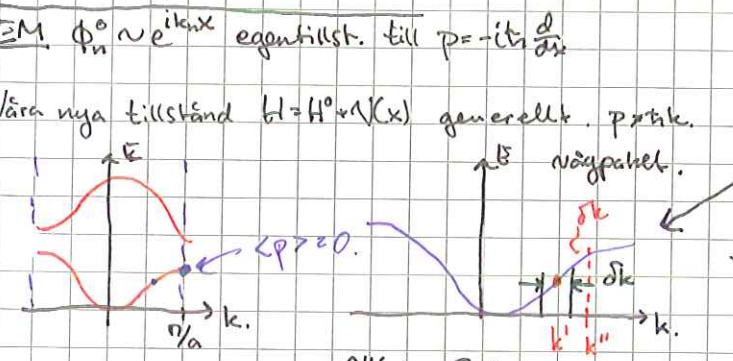 EM φₙ⁰ ~ e^{ikₙx} egentillst. till p = -iħ d/dx
Våra nya tillstånd H = H⁰ + V(x) generellt. p ≠ ħk.
E
E vågpaket.
δk
<p> = 0.
δk
k.
π/a
k' k'' k.